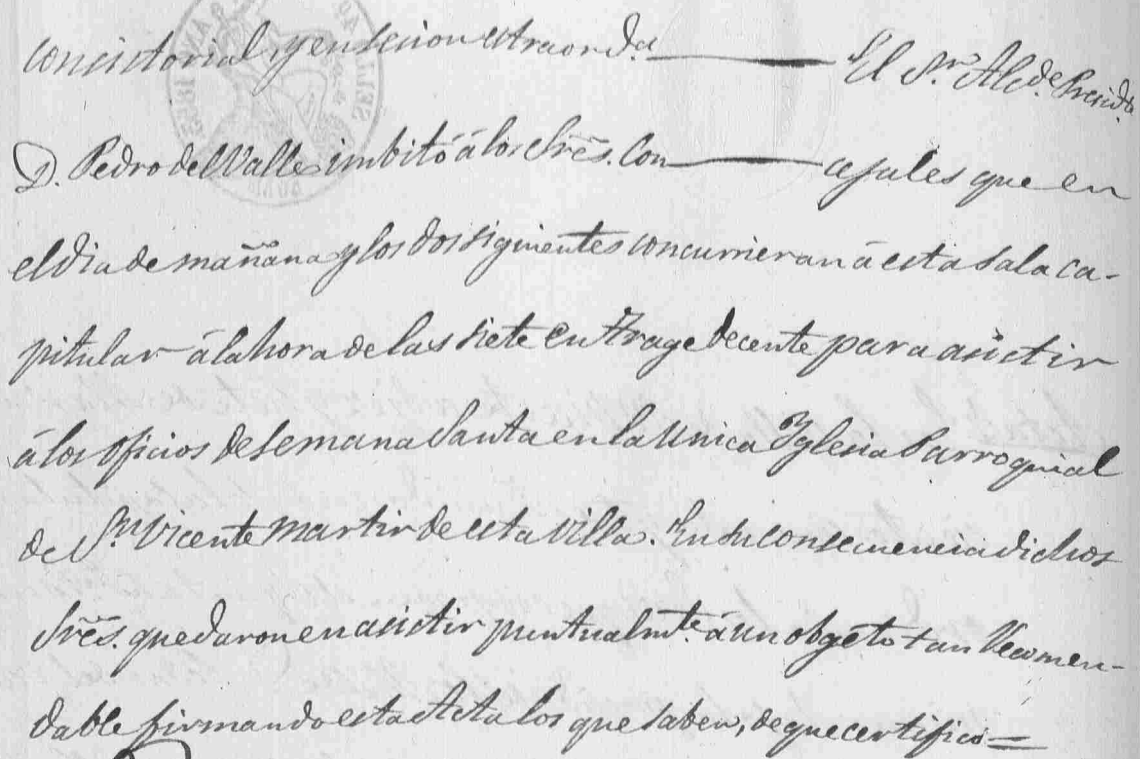 concistorial y en secion estraorda. ——— El Sr. Alcde. Presidte.
D. Pedro del Valle imbitó á los Sres. Con——— cejales que en
el dia de mañana y los dos siguientes concurrieran á esta Sala ca-
pitular á la hora de las siete en trage decente para asictir
á los oficios de Semana Santa en la Unica Yglesia Parroquial
de Sn. Vicente Martir de esta Villa. En su consecuencia dichos
Sres. quedaron en asictir puntualmte. á un obgeto tan recomen-
dable firmando esta Acta los que saben, de que certifico =